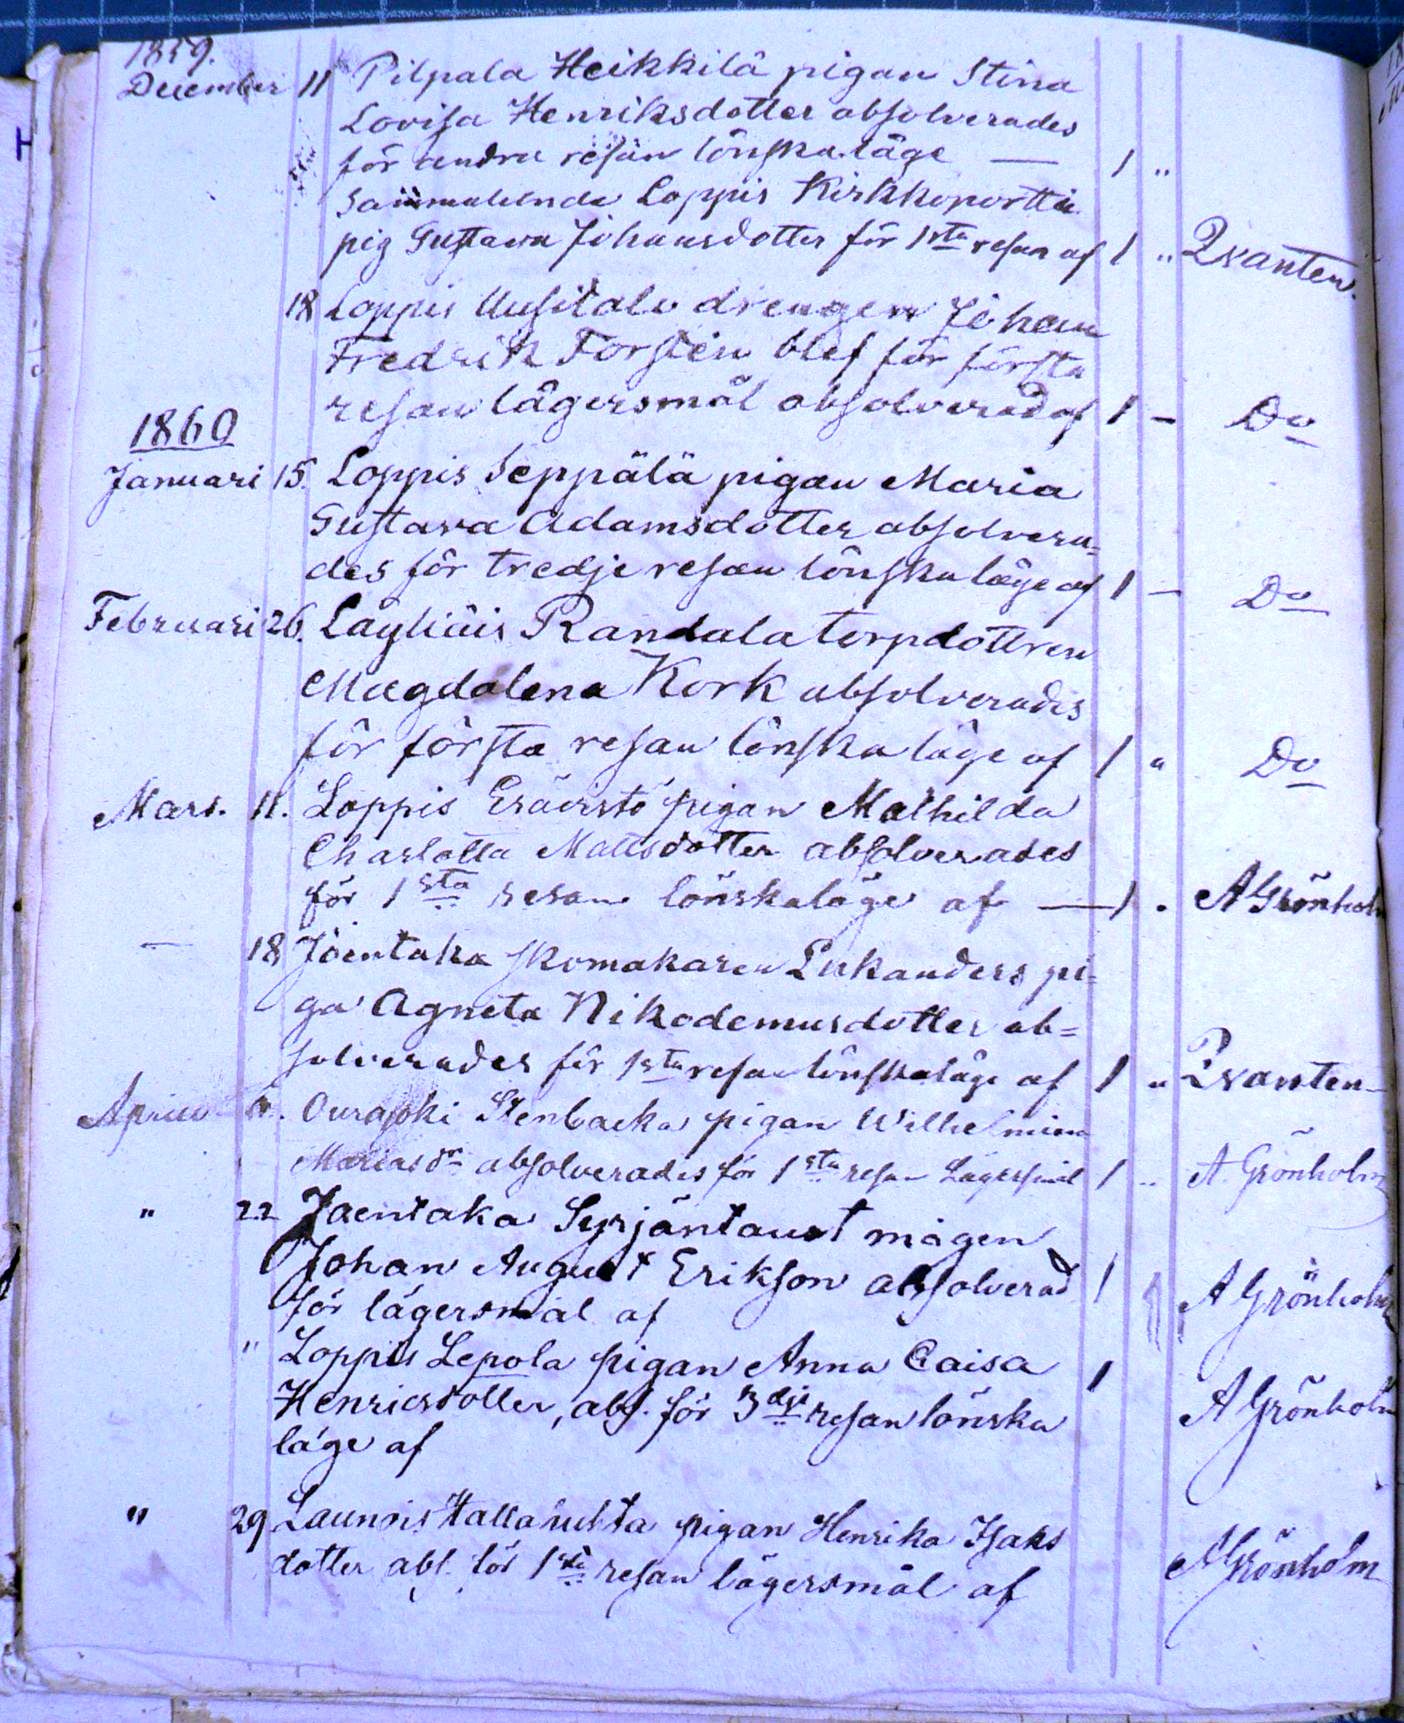 1859.
December 11 Pilpala Heikkilä pigan Stina
Lovisa Henriksdotter absolverades
för andra resan lönskaläge — 1 "
Sammaledes Loppis Kirkkoportti
pig Gustava Johansdotter för 1sta resan af 1 " Qvanten.
18 Loppis Uusitalo drengen Johan
Fredrik Forstén blef för första
resan lägersmål absolverad af 1 – Do
1860
Januari 15. Loppis Seppälä pigan Maria
Gustava Adamsdotter absolvera=
des för tredje resan lönskaläge af 1 – Do
Februari 26. Läyliäis Randala torpdottren
Magdalena Kork absolverades
för första resan lönskaläge af 1 " Do
Mars. 11. Loppis Eräviistö pigan Mathilda
Charlotta Mattsdotter absolverades
för 1sta resan lönskaläge af — 1 . A Grönholm
— 18 Joentaka skomakaren Lukanders pi=
ga Agneta Nikodemusdotter ab=
solverades för 1sta resan lönskaläge af 1 " Qvanten
April Ourajoki Stenbacka pigan Wilhelmina
Mariasdr absolverades för 1sta resan Lägersmål 1 " A. Grönholm
" 22 Joentaka Syrjäntaust mågen
Johan August Erikson absolverad 1 A Grönholm
för lägersmål af
" Loppis Lepola pigan Anna Caisa 1
Henricsdotter, abs. för 3dje resan lönska A Grönholm
läge af
" 29 Launois Hallahuhta pigan Henrika Isaks
dotter abs. för 1sta resan lägersmål af A Grönholm